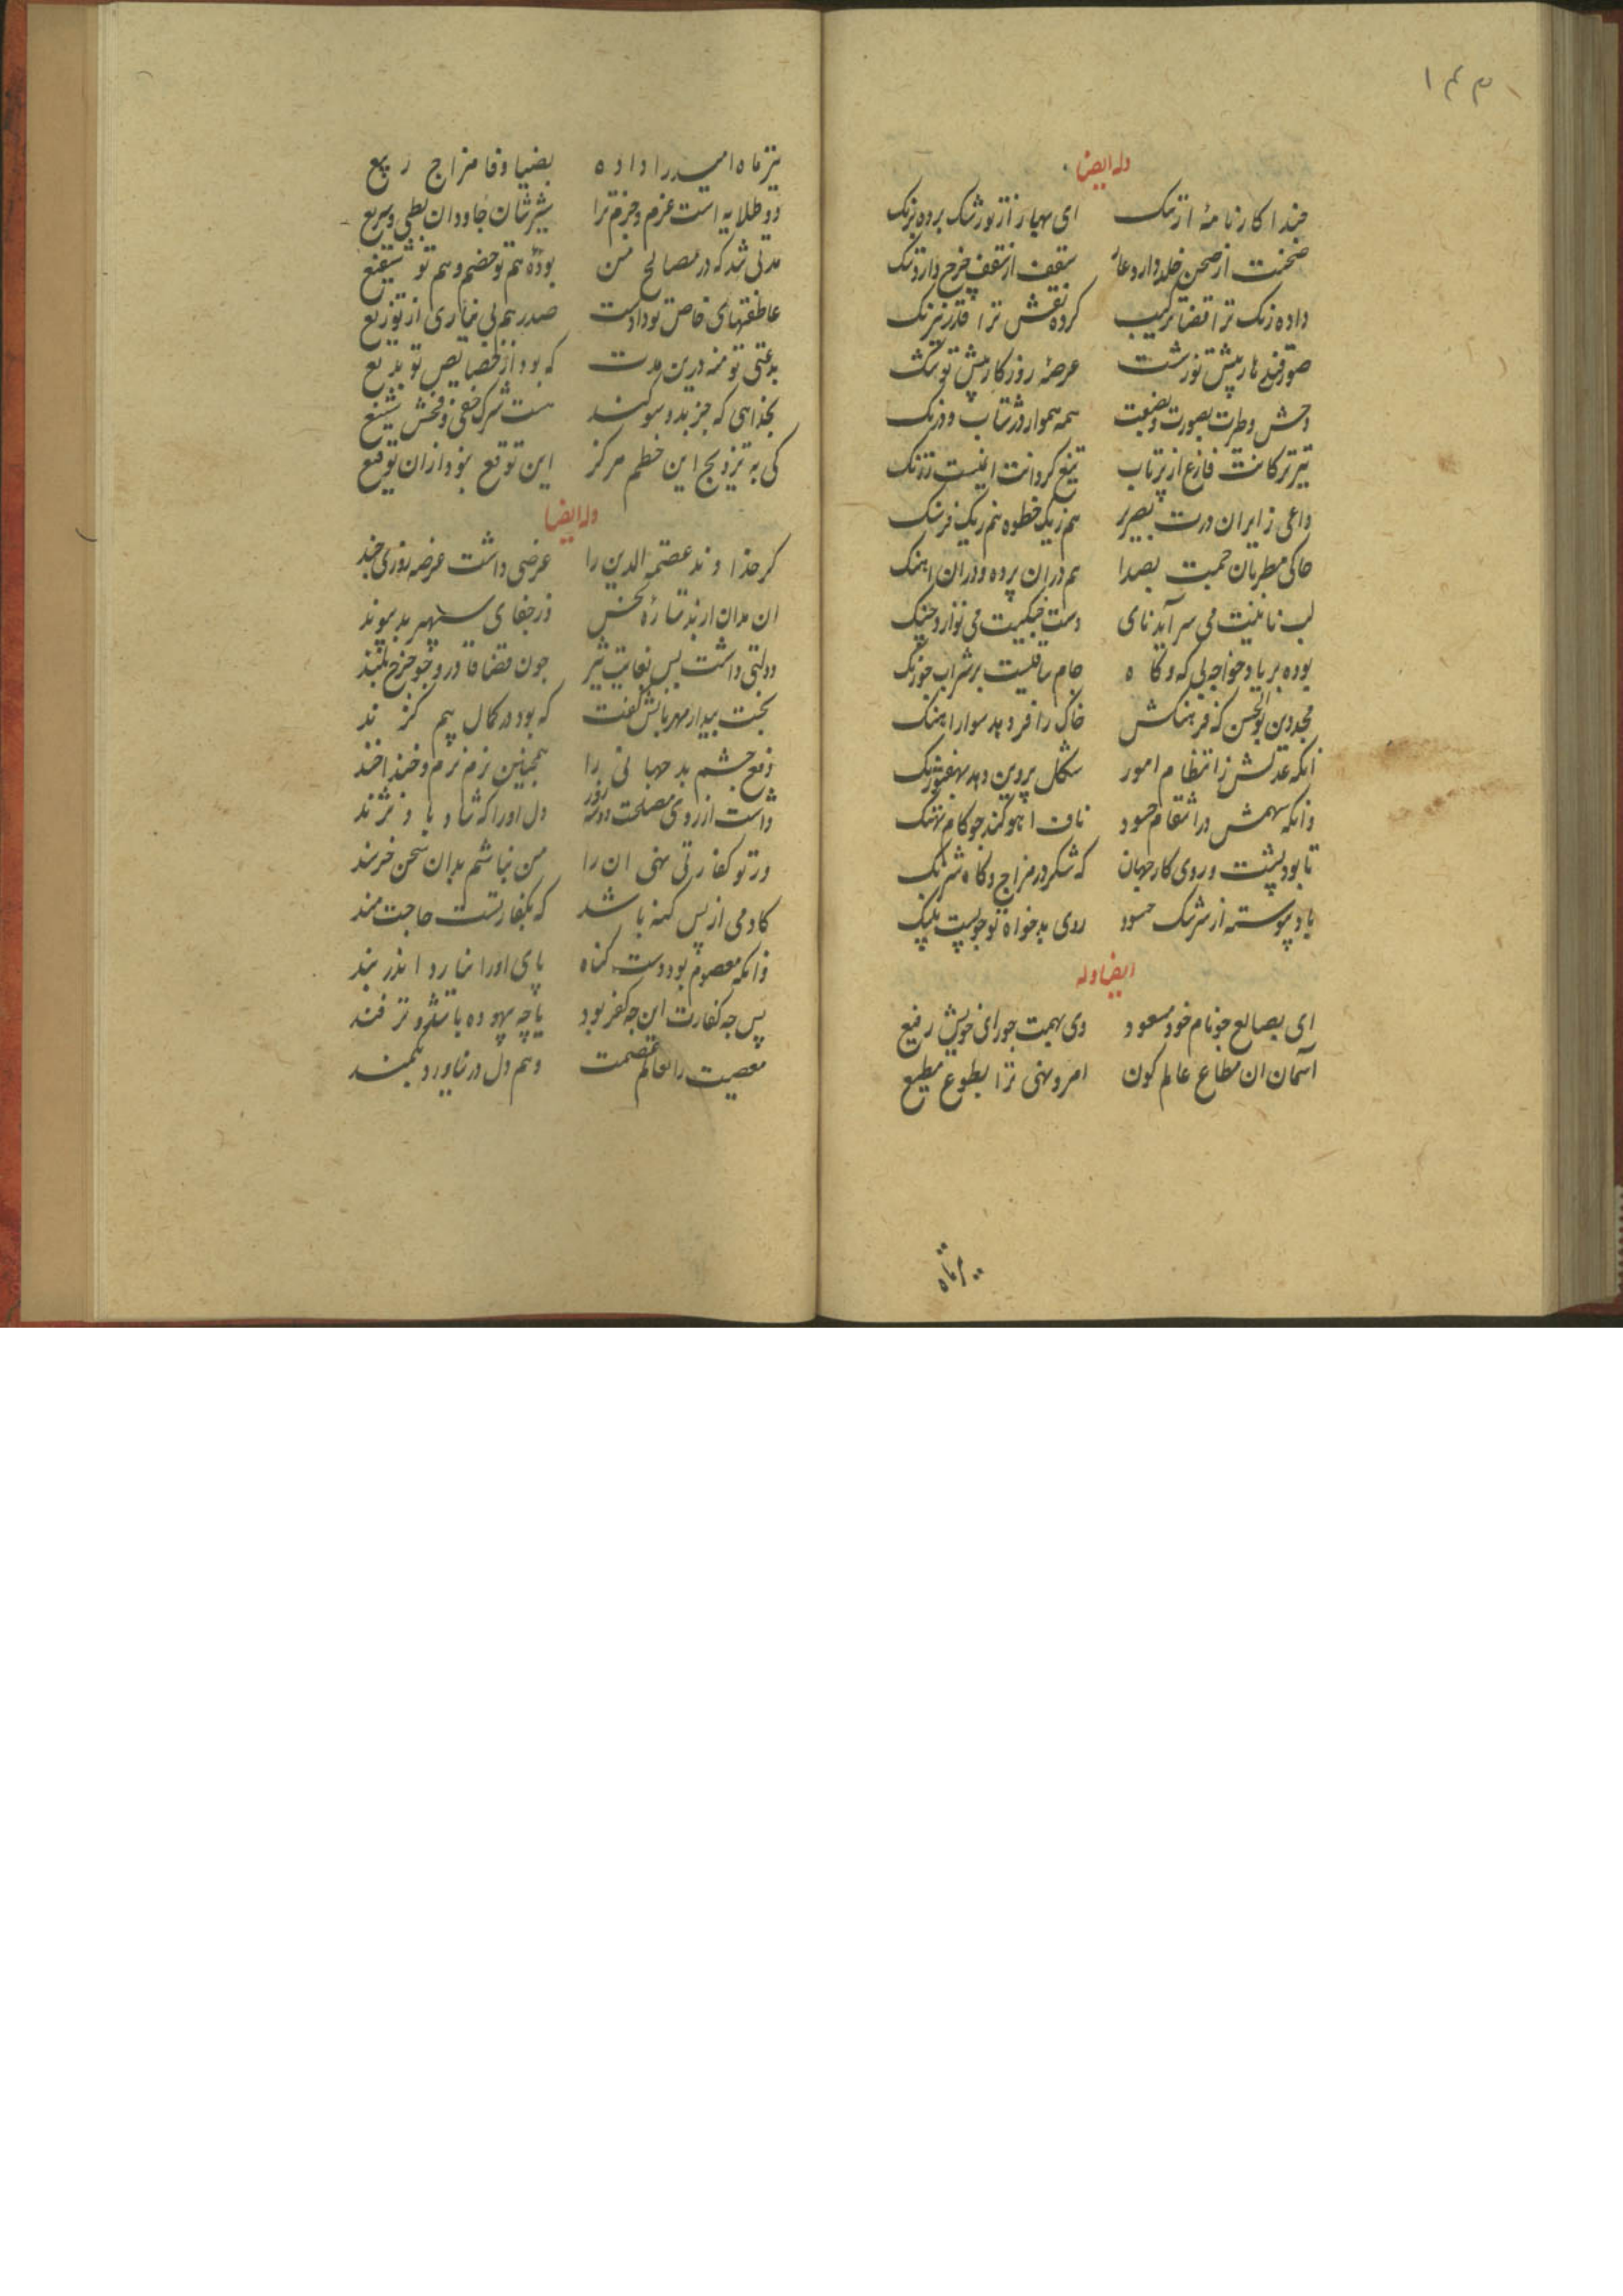 ۱۴۳
وله ایضا
حبذا کارنامهٔ ارتنک ای بهار از تو رشک برده برنک
صحنت از صحن خلد دارد عار سقفت از سقف چرخ دارد ننک
داده رنک ترا قضا ترکیب کرده نقش ترا قدر نیرنک
صورت قندهار پیش تو زشت عرصهٔ روزکار پیش تو تنک
وحش و طیرت بصورت و بصفت همه هموار در شتاب و درنک
تیر ترکانت فارغ از پرتاب تیغ کردانت ایمنست ز زنک
داعی زایران درت بصریر هم ز یک خطوه هم ز یک فرسنک
حاکی مطربان خمت بصدا هم دران پرده و دران اهنک
لب نائیت می سراید نای دست چنکیت می نوازد چنک
بوده بر یاد خواجه بی که و کاه جام ساقیت پر شراب چو زنک
مجد دین بوالحسن که فرهنکش خاک را فر دهد هوا را هنک
انکه عدلش ز انتظام امور شکل پروین دهد بهفتورنک
وانکه سهمش در انتقام حسود ناف اهو کند چو کام نهنک
تا بود پشت و روی کار جهان که شکر در مزاج و کاه شرنک
باد پیوسته از سرشک حسود روی بدخواه تو چو پشت پلنک
ایضا وله
ای بصالع چو نام خود مسعود وی بهمت چو رای خویش رفیع
آسمان ان مطاع عالم کون امر و نهی ترا بطوع مطیع
تیرماه
تیرماه امید را داده بضیا و فا مزاج ربیع
دو طلایه است عزم و حزم ترا سیرشان جاودان بطی و سریع
مدتی شد که در مصالح من بودهٔ هم تو خصم و هم تو شفیع
عاطفتهای خاص تو دادست صدر هم بی نیازی از توزیع
بدعتی تو منه درین مدت که بود از خصایص تو بدیع
بخذایی که جز بدو سوکند هست شرک خفی و فحش شنیع
کی به تزویج این خطم مرکز این توقع بود ازان توقیع
وله ایضا
کر خذاوند عصمة الدین را عرضی داشت عرضه روزی چند
ان مدان از بد ستارهٔ نحس وز جفای سپهر بد پیوند
دولتی داشت بس بغایت تیز چون قضا قادر و چو چرخ بلند
بخت بیدار مهربانش کفت که بود در کمال بیم کزند
دفع چشم بد جهانی را همچنین نرم نرم و خنداخند
داشت از روی مصلحت دو سه روز دل او را که شاد باد نژند
ور تو کفارتی نهی ان را من نباشم بدان سخن خرسند
کادمی از پس کنه باشد که بکفارتست حاجتمند
وانکه معصوم بود دست کناه پای او را نیارد اندر بند
پس چه کفارت این چه کفر بود یا چه بیهوده باشد و ترفند
معصیت را بعالم عصمت وهم دل در نیاورد بکمند